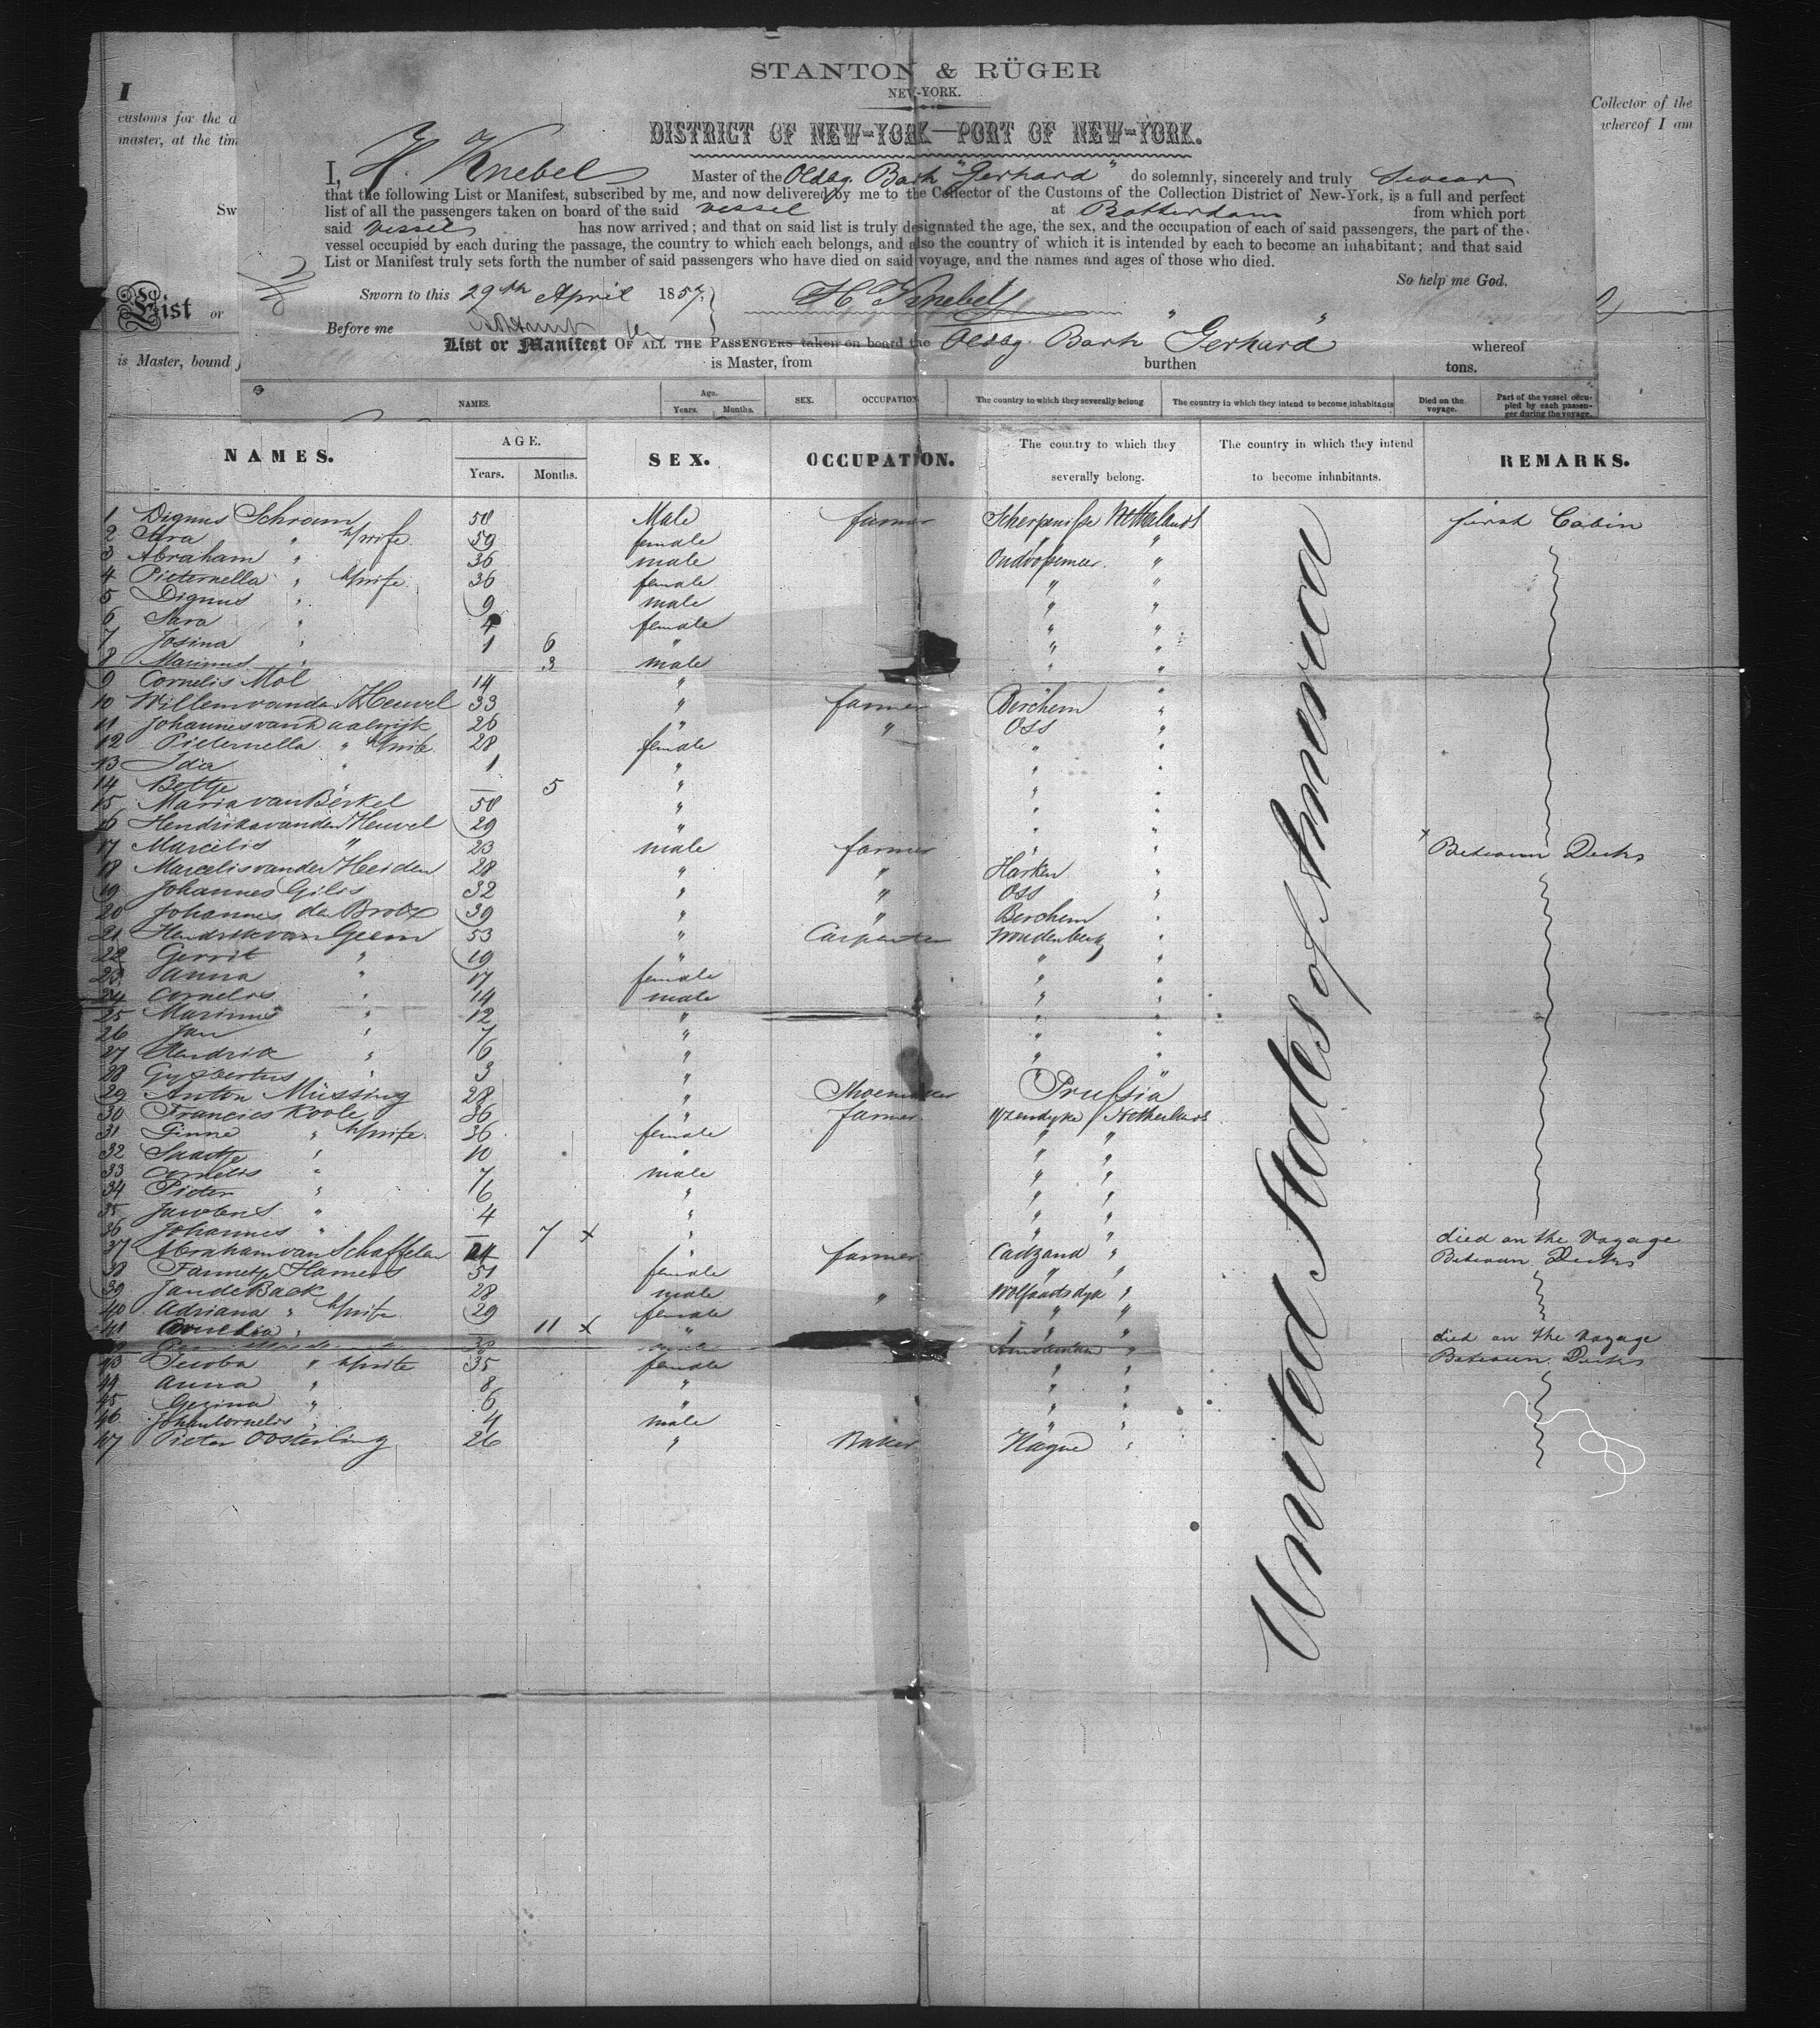 STANTON & RÜGER
NEW-YORK.
DISTRICT OF NEW-YORK—PORT OF NEW-YORK.
I, H. Knebel Master of the Oldbg. Bark "Gerhard" do solemnly, sincerely and truly swear
that the following List or Manifest, subscribed by me, and now delivered by me to the Collector of the Customs of the Collection District of New-York, is a full and perfect
list of all the passengers taken on board of the said vessel at Rotterdam from which port
said vessel has now arrived; and that on said list is truly designated the age, the sex, and the occupation of each of said passengers, the part of the
vessel occupied by each during the passage, the country to which each belongs, and also the country of which it is intended by each to become an inhabitant; and that said
List or Manifest truly sets forth the number of said passengers who have died on said voyage, and the names and ages of those who died.
So help me God.
Sworn to this 29th April 1857. H Knebel
Before me
List or Manifest OF ALL THE PASSENGERS taken on board the Oldbg. Bark "Gerhard" whereof
is Master, from burthen tons.
NAMES. Age. Years. Months. SEX. OCCUPATION The country to which they severally belong The country in which they intend to become inhabitants Died on the voyage. Part of the vessel occupied by each passenger during the voyage.
I
customs for the d
master, at the tim
Sw
List or
is Master, bound
Collector of the
whereof I am
NAMES. AGE. Years. Months. SEX. OCCUPATION. The country to which they severally belong. The country in which they intend to become inhabitants. REMARKS.
1 Dignus Schram 58 Male farmer Scherpenisse Netherlands first Cabin
2 Sara " h/wife 59 female " "
3 Abraham " 36 male "
4 Pieternella " h/wife 36 female " "
5 Dignus " 9 male " "
6 Sara " 4 female " "
7 Josina " 1 6 " " "
8 Marinus " 3 male " "
9 Cornelis Mol 14 " "
10 Willem van den Heuvel 33 " farmer Berchem "
11 Johannes van 26 " " Oss "
12 Pieternella " h/wife 28 female " "
13 Ida " 1 " " "
14 Betje " — 5 " " "
15 Maria van Berkel 58 " " "
16 Hendrika van den Heuvel 29 " " "
17 Marcelis " 23 male farmer " " Between Decks
18 Marcelis van der Heiden 28 " " "
19 Johannes Gilis 32 " " Oss "
20 Johannes den 39 " " Berchem "
21 Hendrik van Geem 53 " Carpenter Woudenberg "
22 Gerrit " 19 " " "
23 Anna " 17 female " "
24 Cornelis " 14 male " "
25 Marinus " 12 " " "
26 Jan " 7 " " "
27 Hendrik " 6 " " "
28 Gysbertus " 3 " " "
29 Anton Müssing 28 " Shoemaker Prussia
30 Francies Koole 36 " farmer Yzendyke Netherlands
31 " h/wife 36 female " "
32 " 10 " " "
33 Cornelis " 7 male " "
34 Pieter " 6 " " "
35 Jacobus " 4 " " "
36 Johannes " — 7 x " " " died on the Voyage
37 Abraham van Schaffelen 24 " farmer Cadzand " Between Decks
38 Hamers 51 female " "
39 Jan de Back 28 male " Wolfaartsdyk "
40 Adriana " h/wife 29 female " "
41 Cornelia " — 11 x " " " died on the Voyage
Amsterdam " Between Decks
43 Jacoba " h/wife 35 female " "
44 Anna " 8 " " "
45 Gezina " 6 " " "
46 Johan Cornelis " 4 male " "
47 Pieter Oosterling 26 " Baker Hague "
United States of America